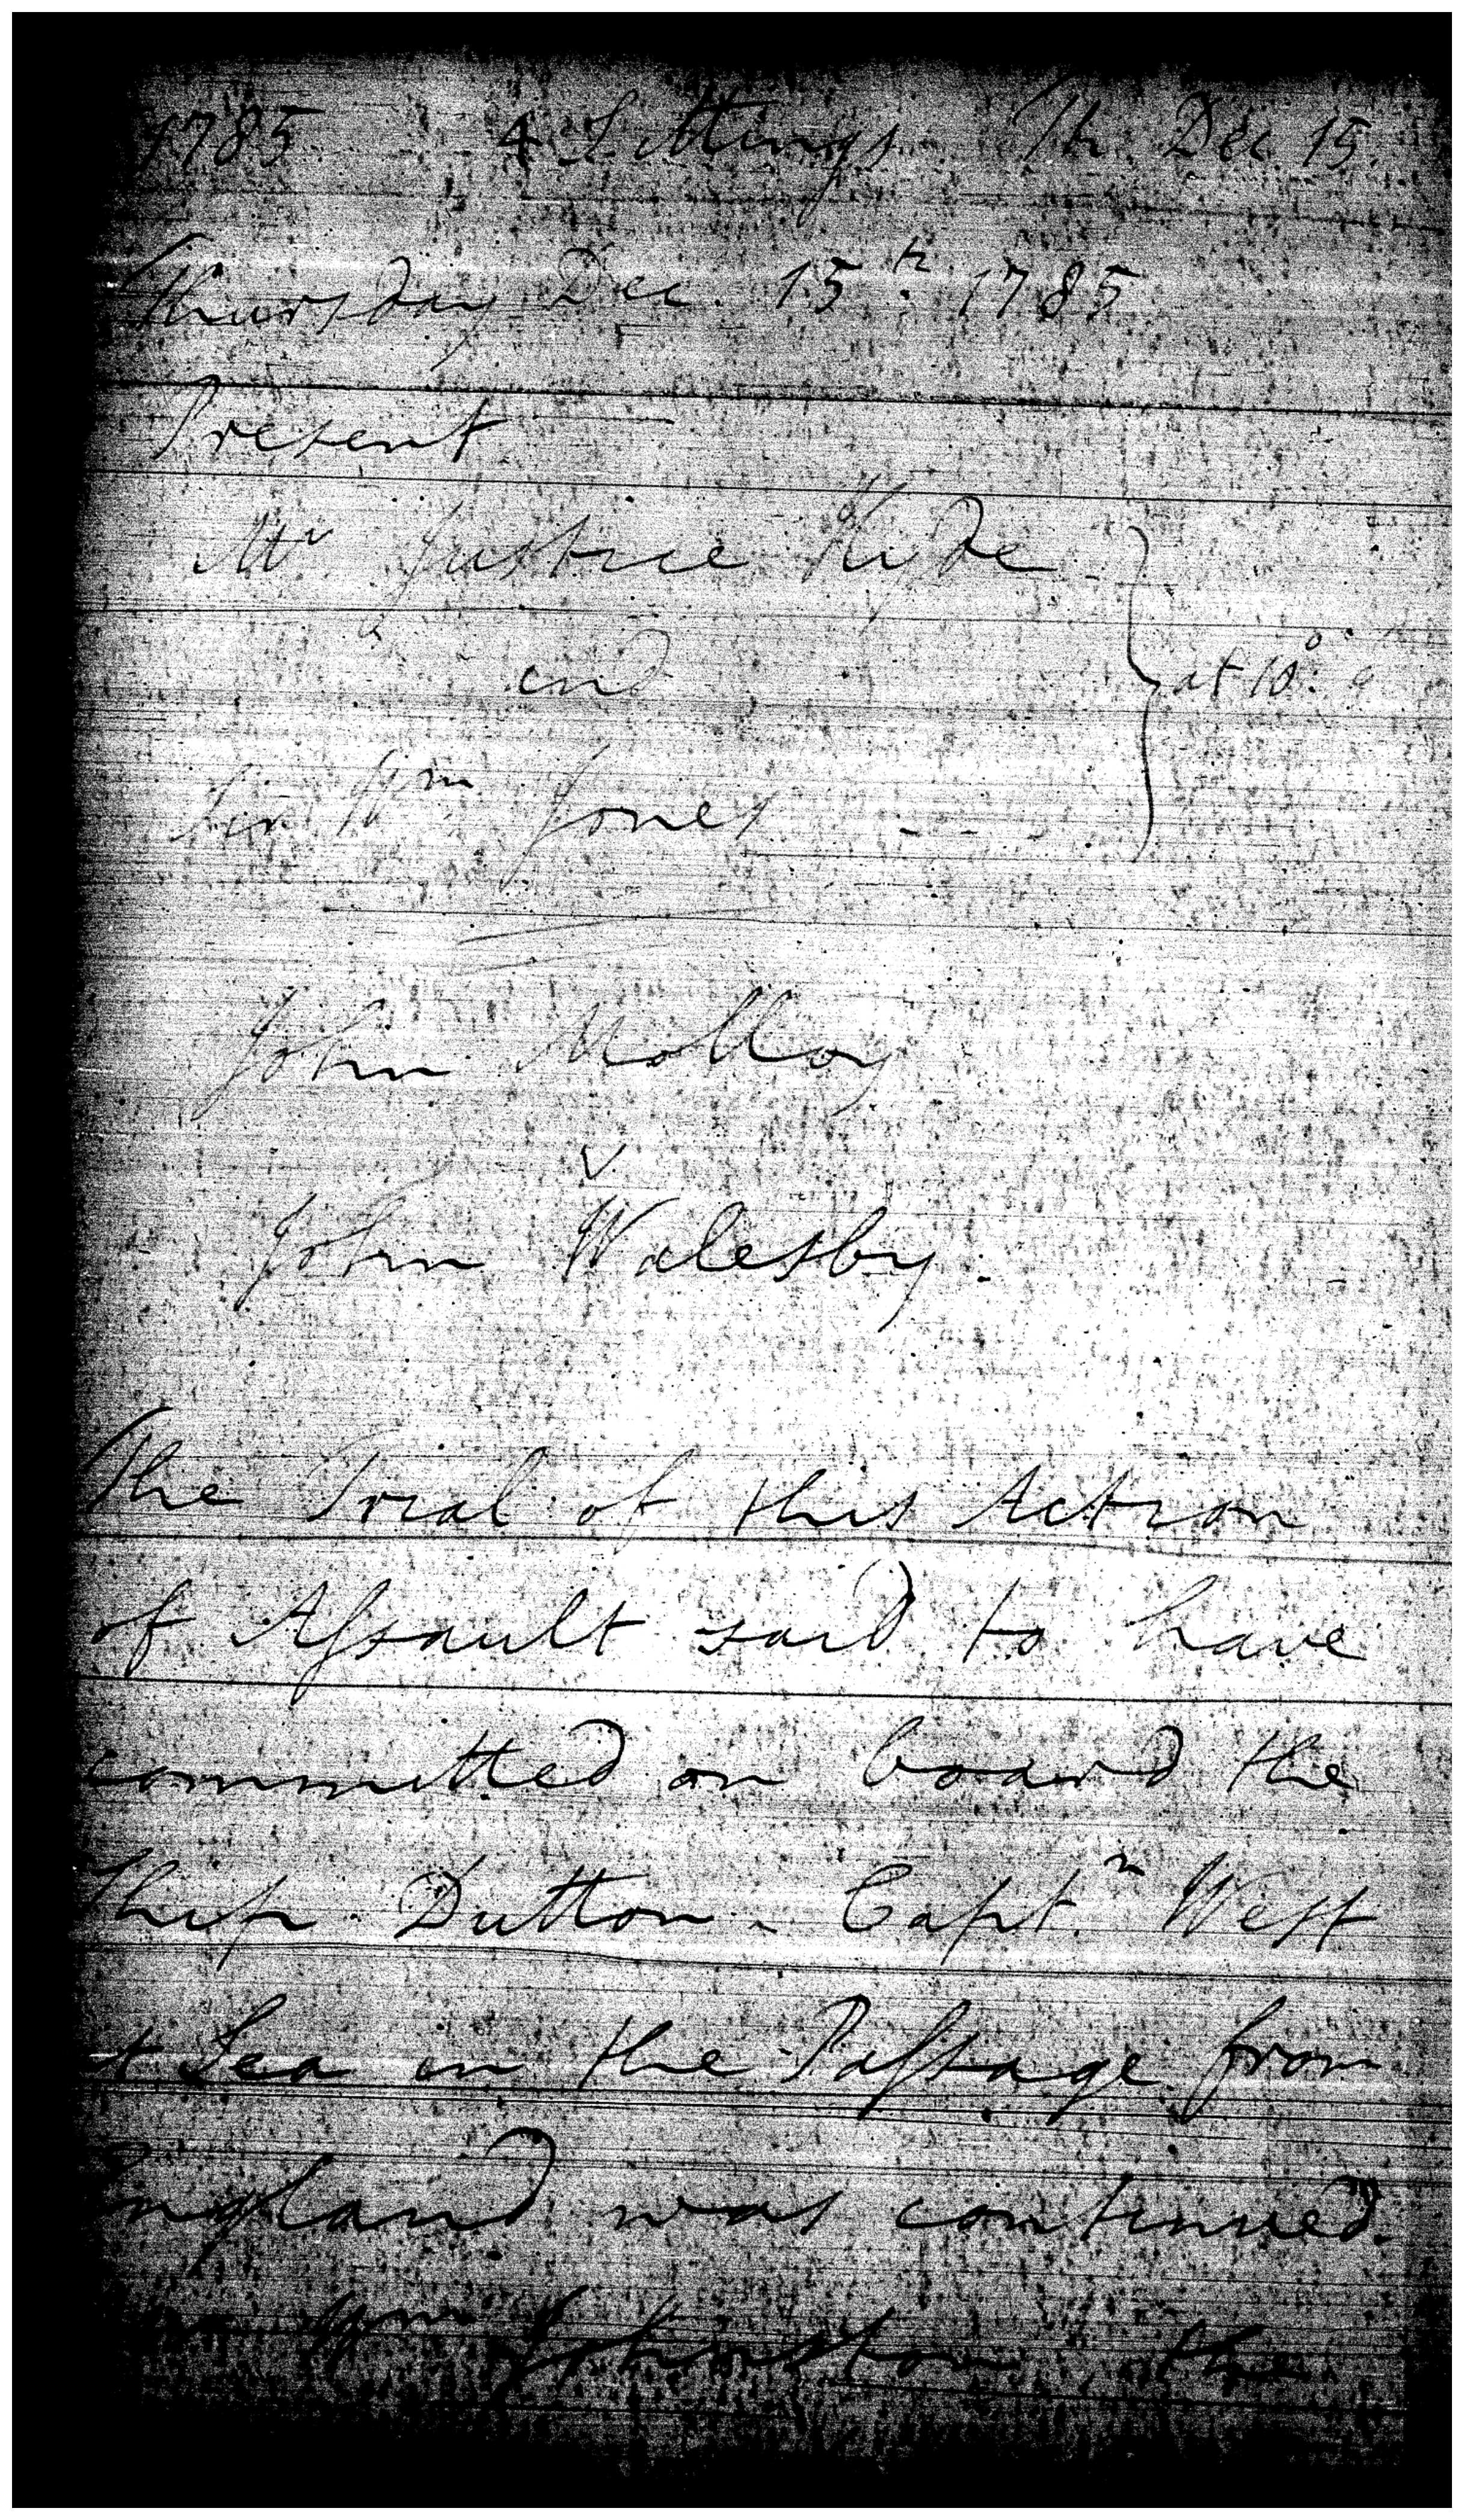 1785 4 Sittings Th. Dec. 15.
Thursday Dec. 15th. 1785
Present.
Mr Justice Hyde
and
at 10°.
Sir Wm Jones - - -
John Molloy
v
John Walesby.
The Trial of this Action
of Assault said to have
committed on board the
Ship Dutton. Captn West
at Sea in the Passage from
England was continued.
Wm Johnston the